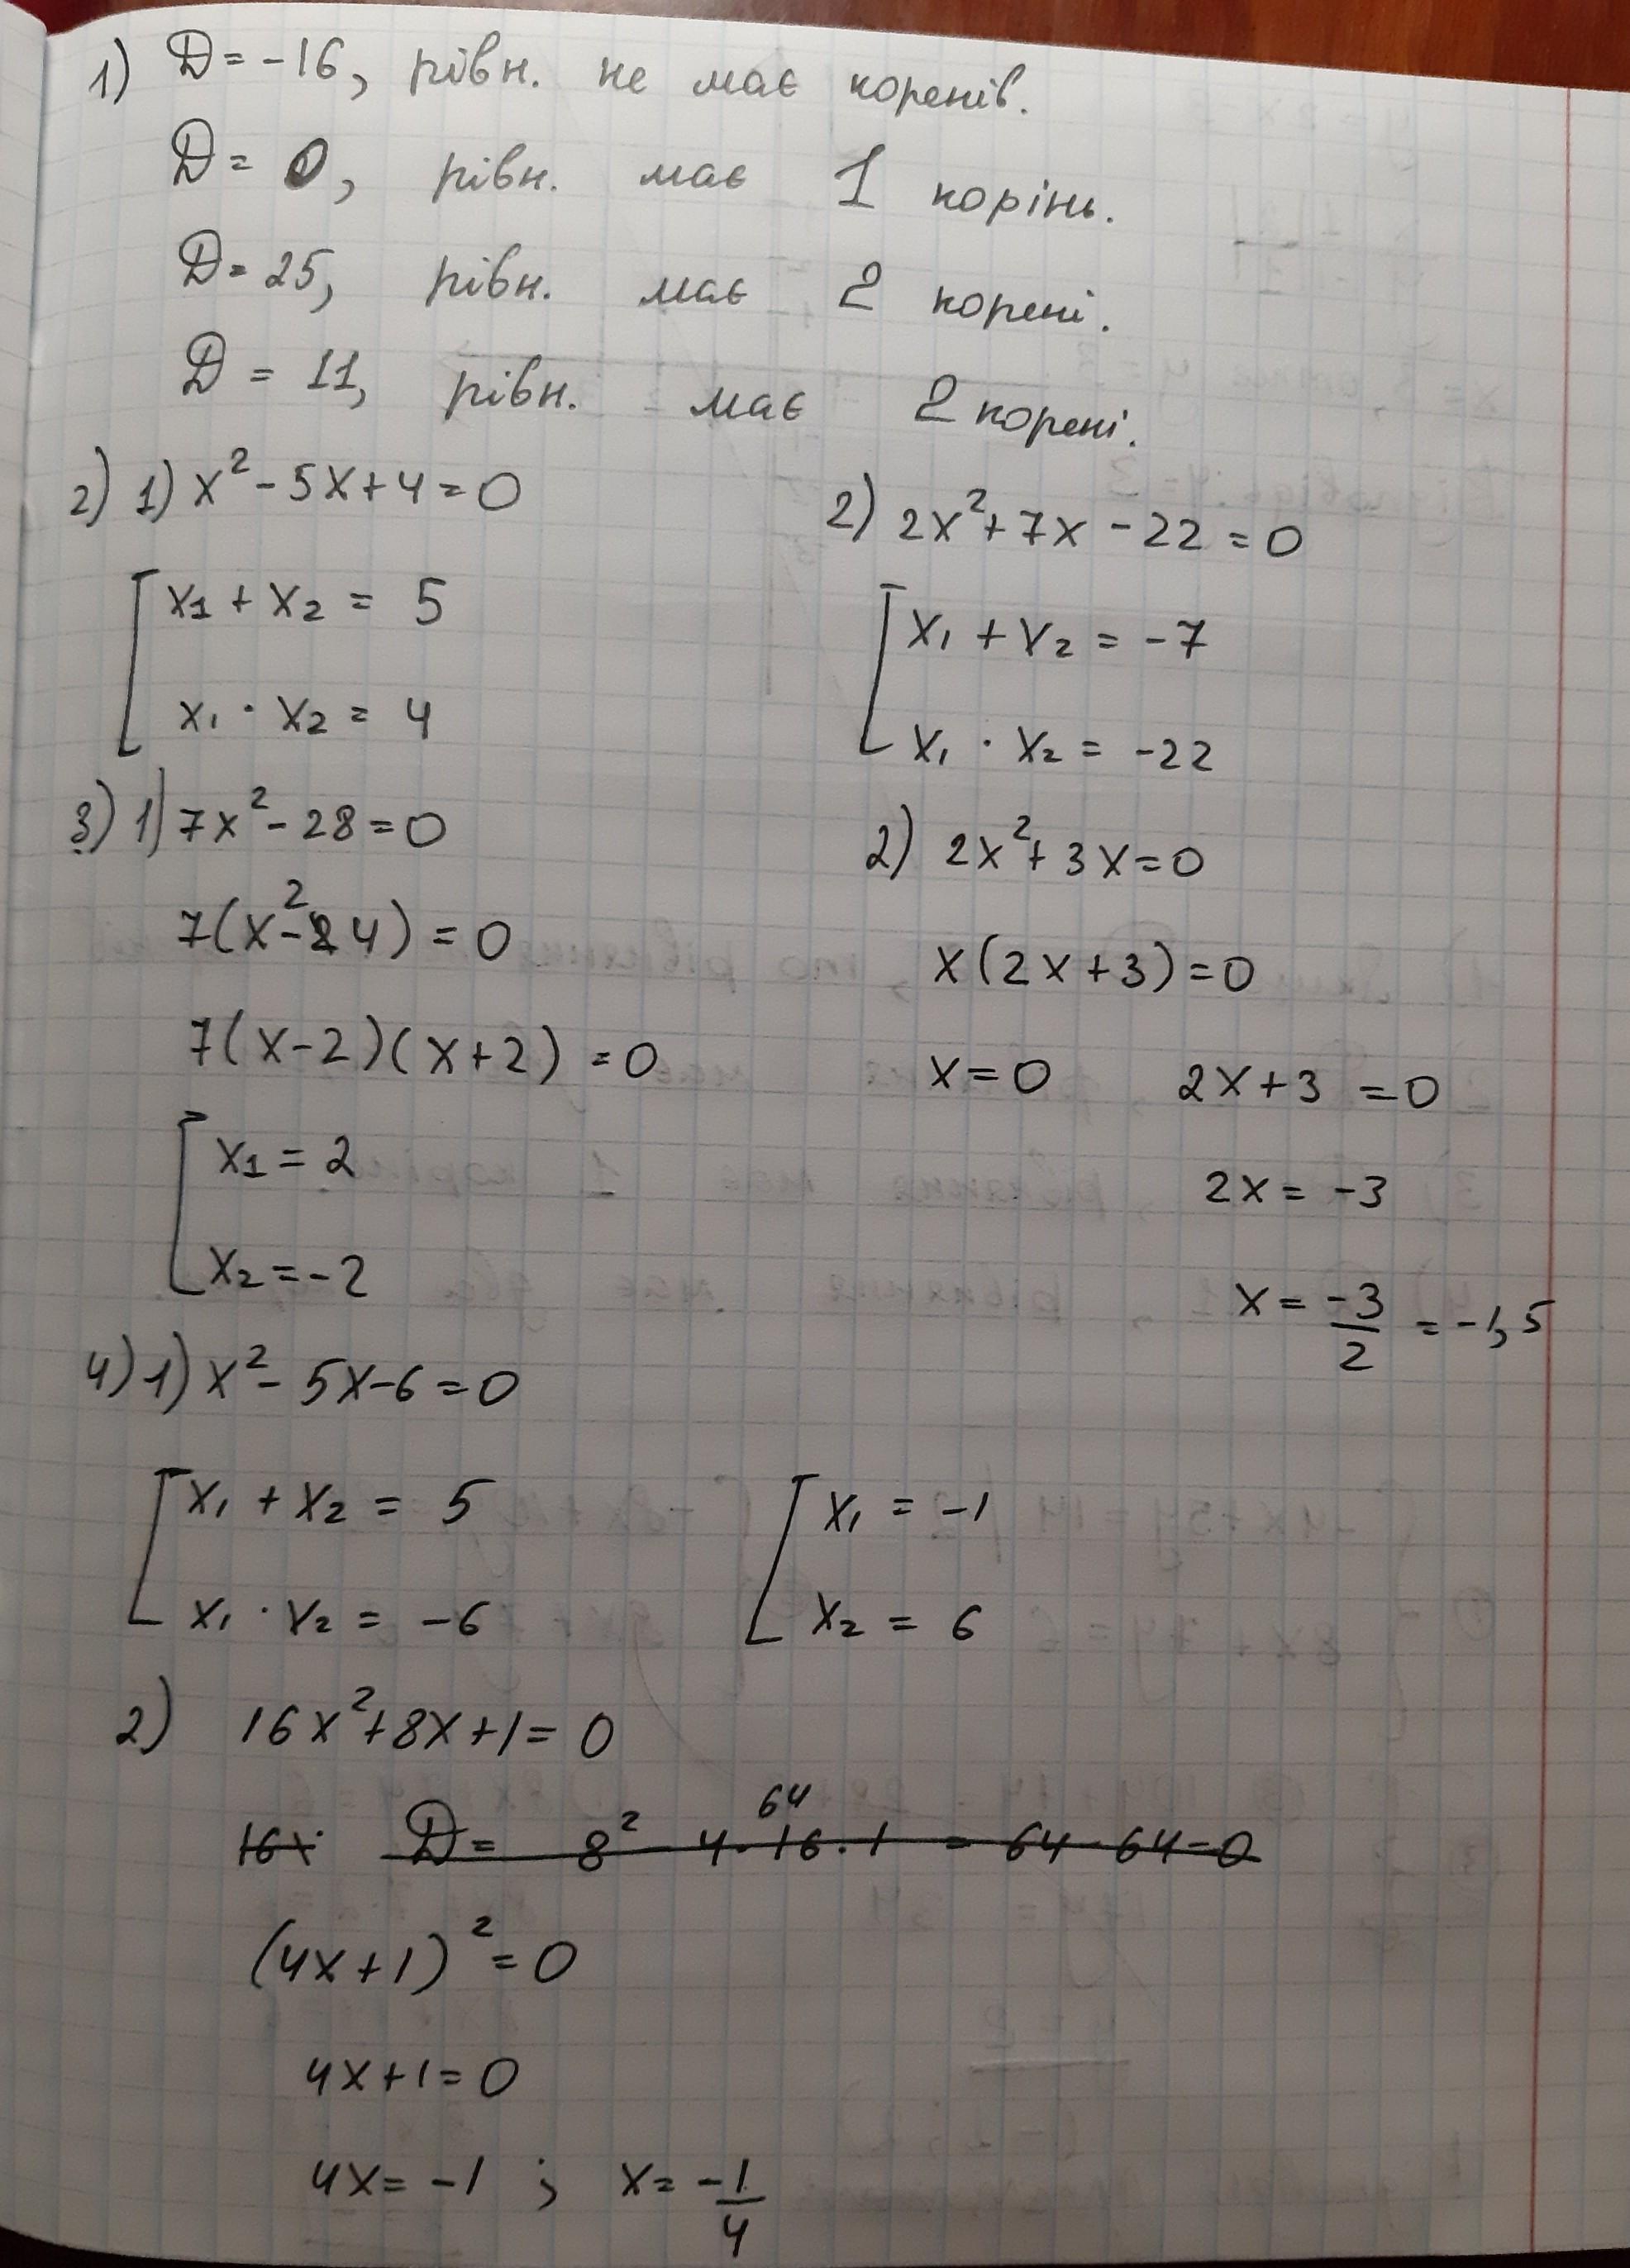 1) D = -16, рівн. не має коренів.
D = 0, рівн. має 1 корінь.
D = 25, рівн. має 2 корені.
D = 11, рівн. має 2 корені.
2) 1) x² - 5x + 4 = 0
x₁ + x₂ = 5
x₁ · x₂ = 4
2) 2x² + 7x - 22 = 0
x₁ + x₂ = -7
x₁ · x₂ = -22
3) 1) 7x² - 28 = 0
7(x² - 4) = 0
7(x-2)(x+2) = 0
x₁ = 2
x₂ = -2
2) 2x² + 3x = 0
x(2x+3) = 0
x = 0 2x + 3 = 0
2x = -3
x = -3/2 = -1,5
4) 1) x² - 5x - 6 = 0
x₁ + x₂ = 5
x₁ · x₂ = -6
x₁ = -1
x₂ = 6
2) 16x² + 8x + 1 = 0
64
16x D = 8² - 4 · 16 · 1 = 64 - 64 = 0
(4x+1)² = 0
4x + 1 = 0
4x = -1 ; x = -1/4